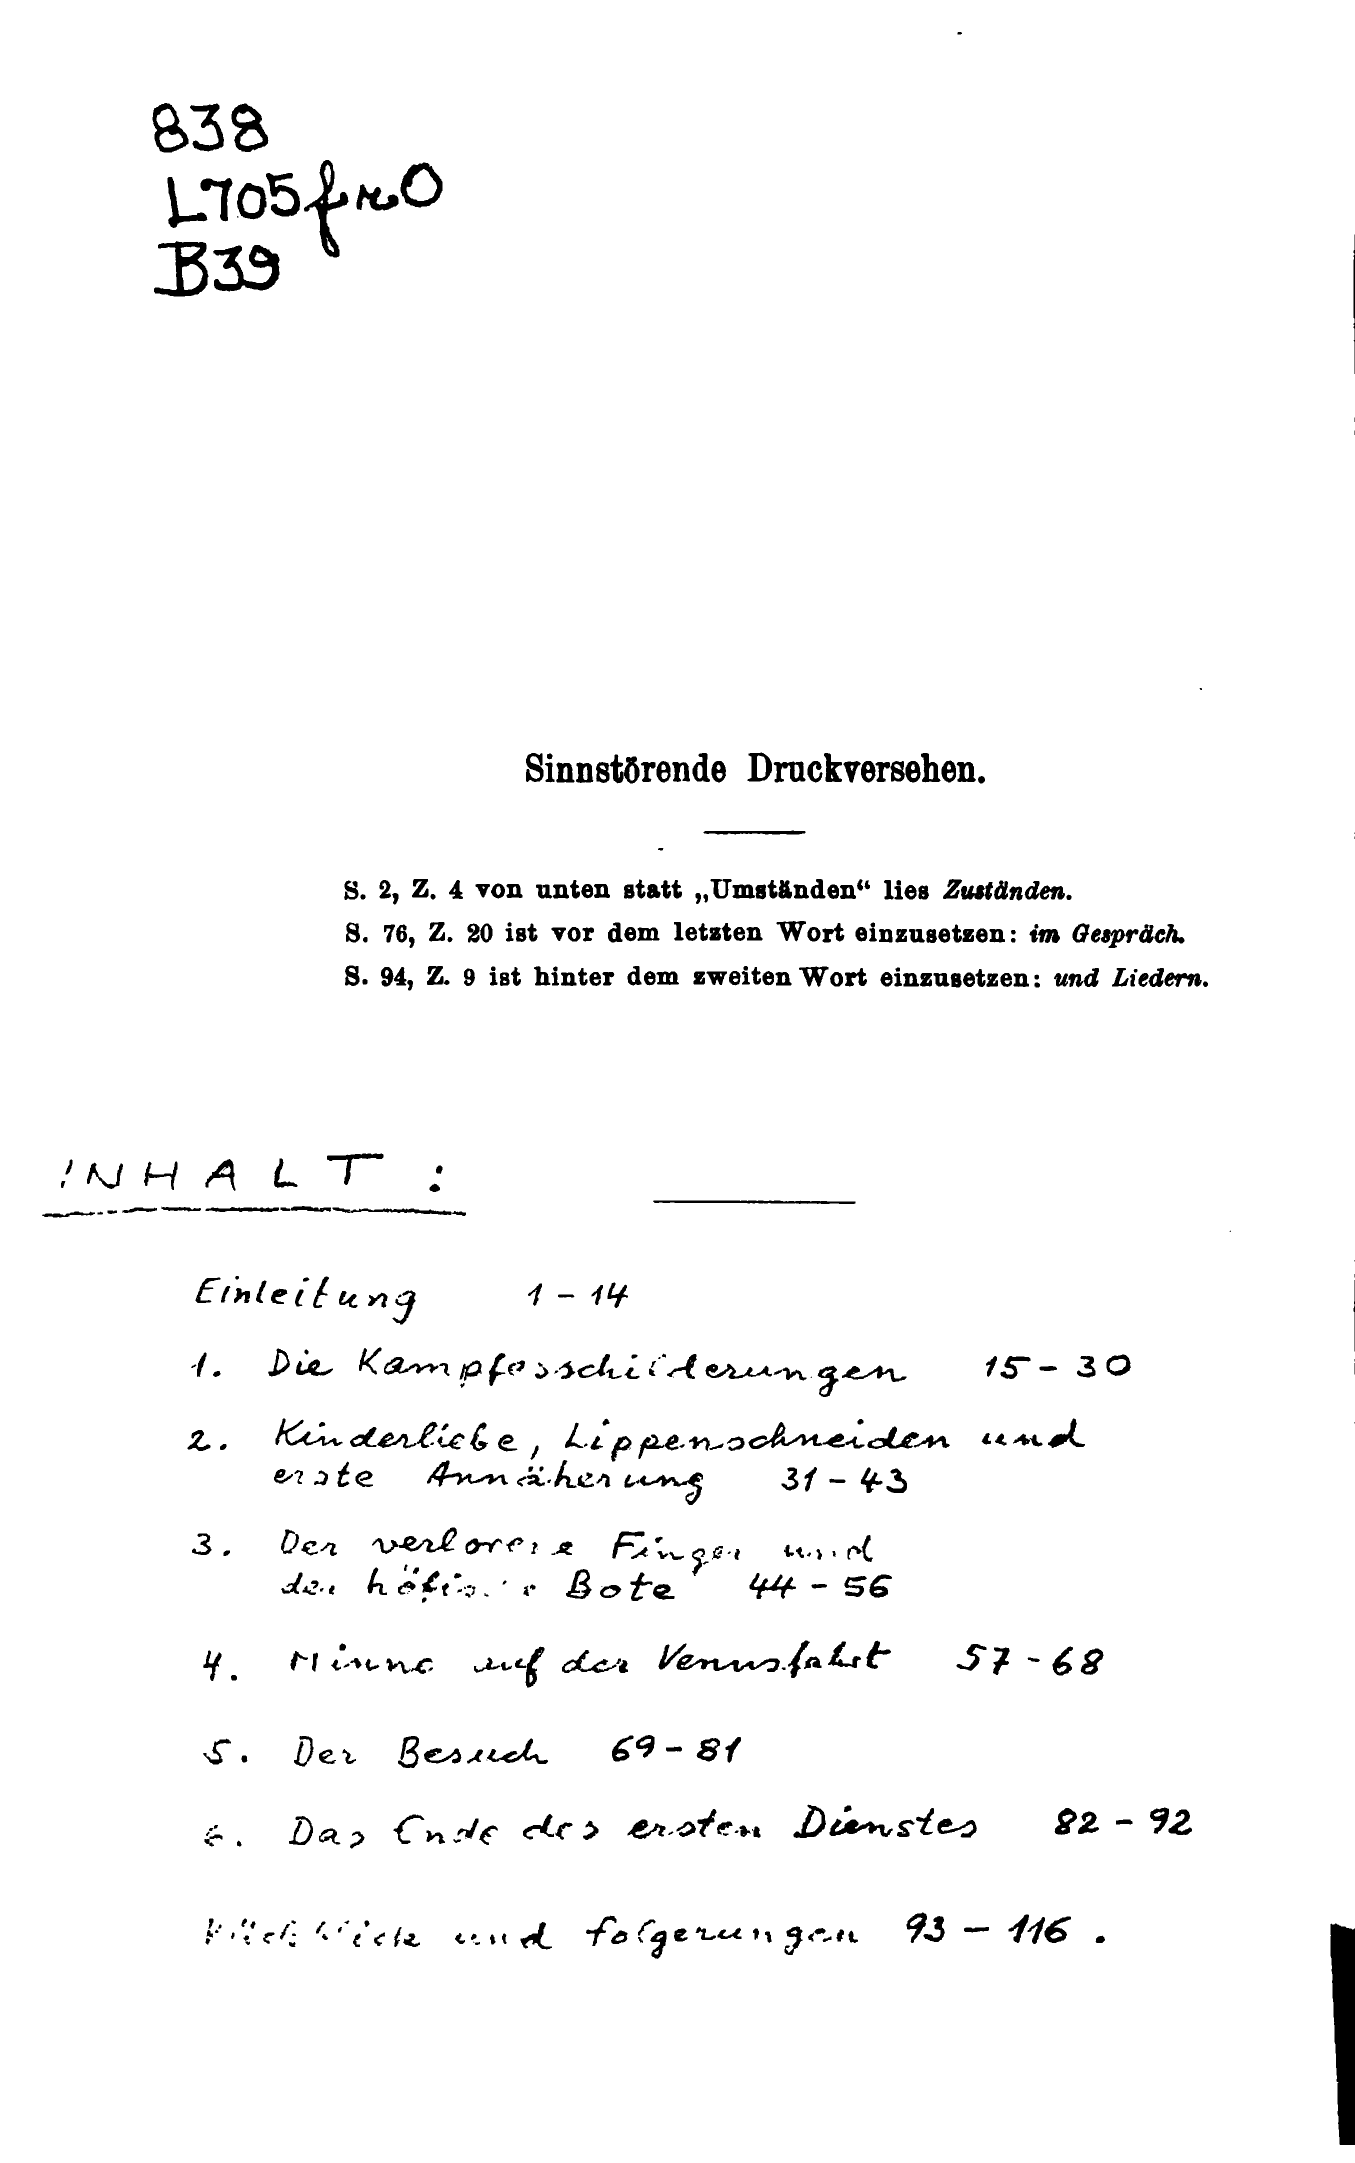 838
L705frO
B39
Sinnstörende Druckversehen.
S. 2, Z. 4 von unten statt „Umständen“ lies Zuständen.
S. 76, Z. 20 ist vor dem letzten Wort einzusetzen: im Gespräch.
S. 94, Z. 9 ist hinter dem zweiten Wort einzusetzen: und Liedern.
INHALT :
Einleitung 1 - 14
1. Die Kampfesschilderungen 15 - 30
2. Kinderliebe, Lippenschneiden und
erste Annäherung 31 - 43
3. Der verlorene Finger und
der höfische Bote 44 - 56
4. Minne auf der Venusfahrt 57 - 68
5. Der Besuch 69 - 81
6. Das Ende des ersten Dienstes 82 - 92
Rückblick und Folgerungen 93 - 116 .